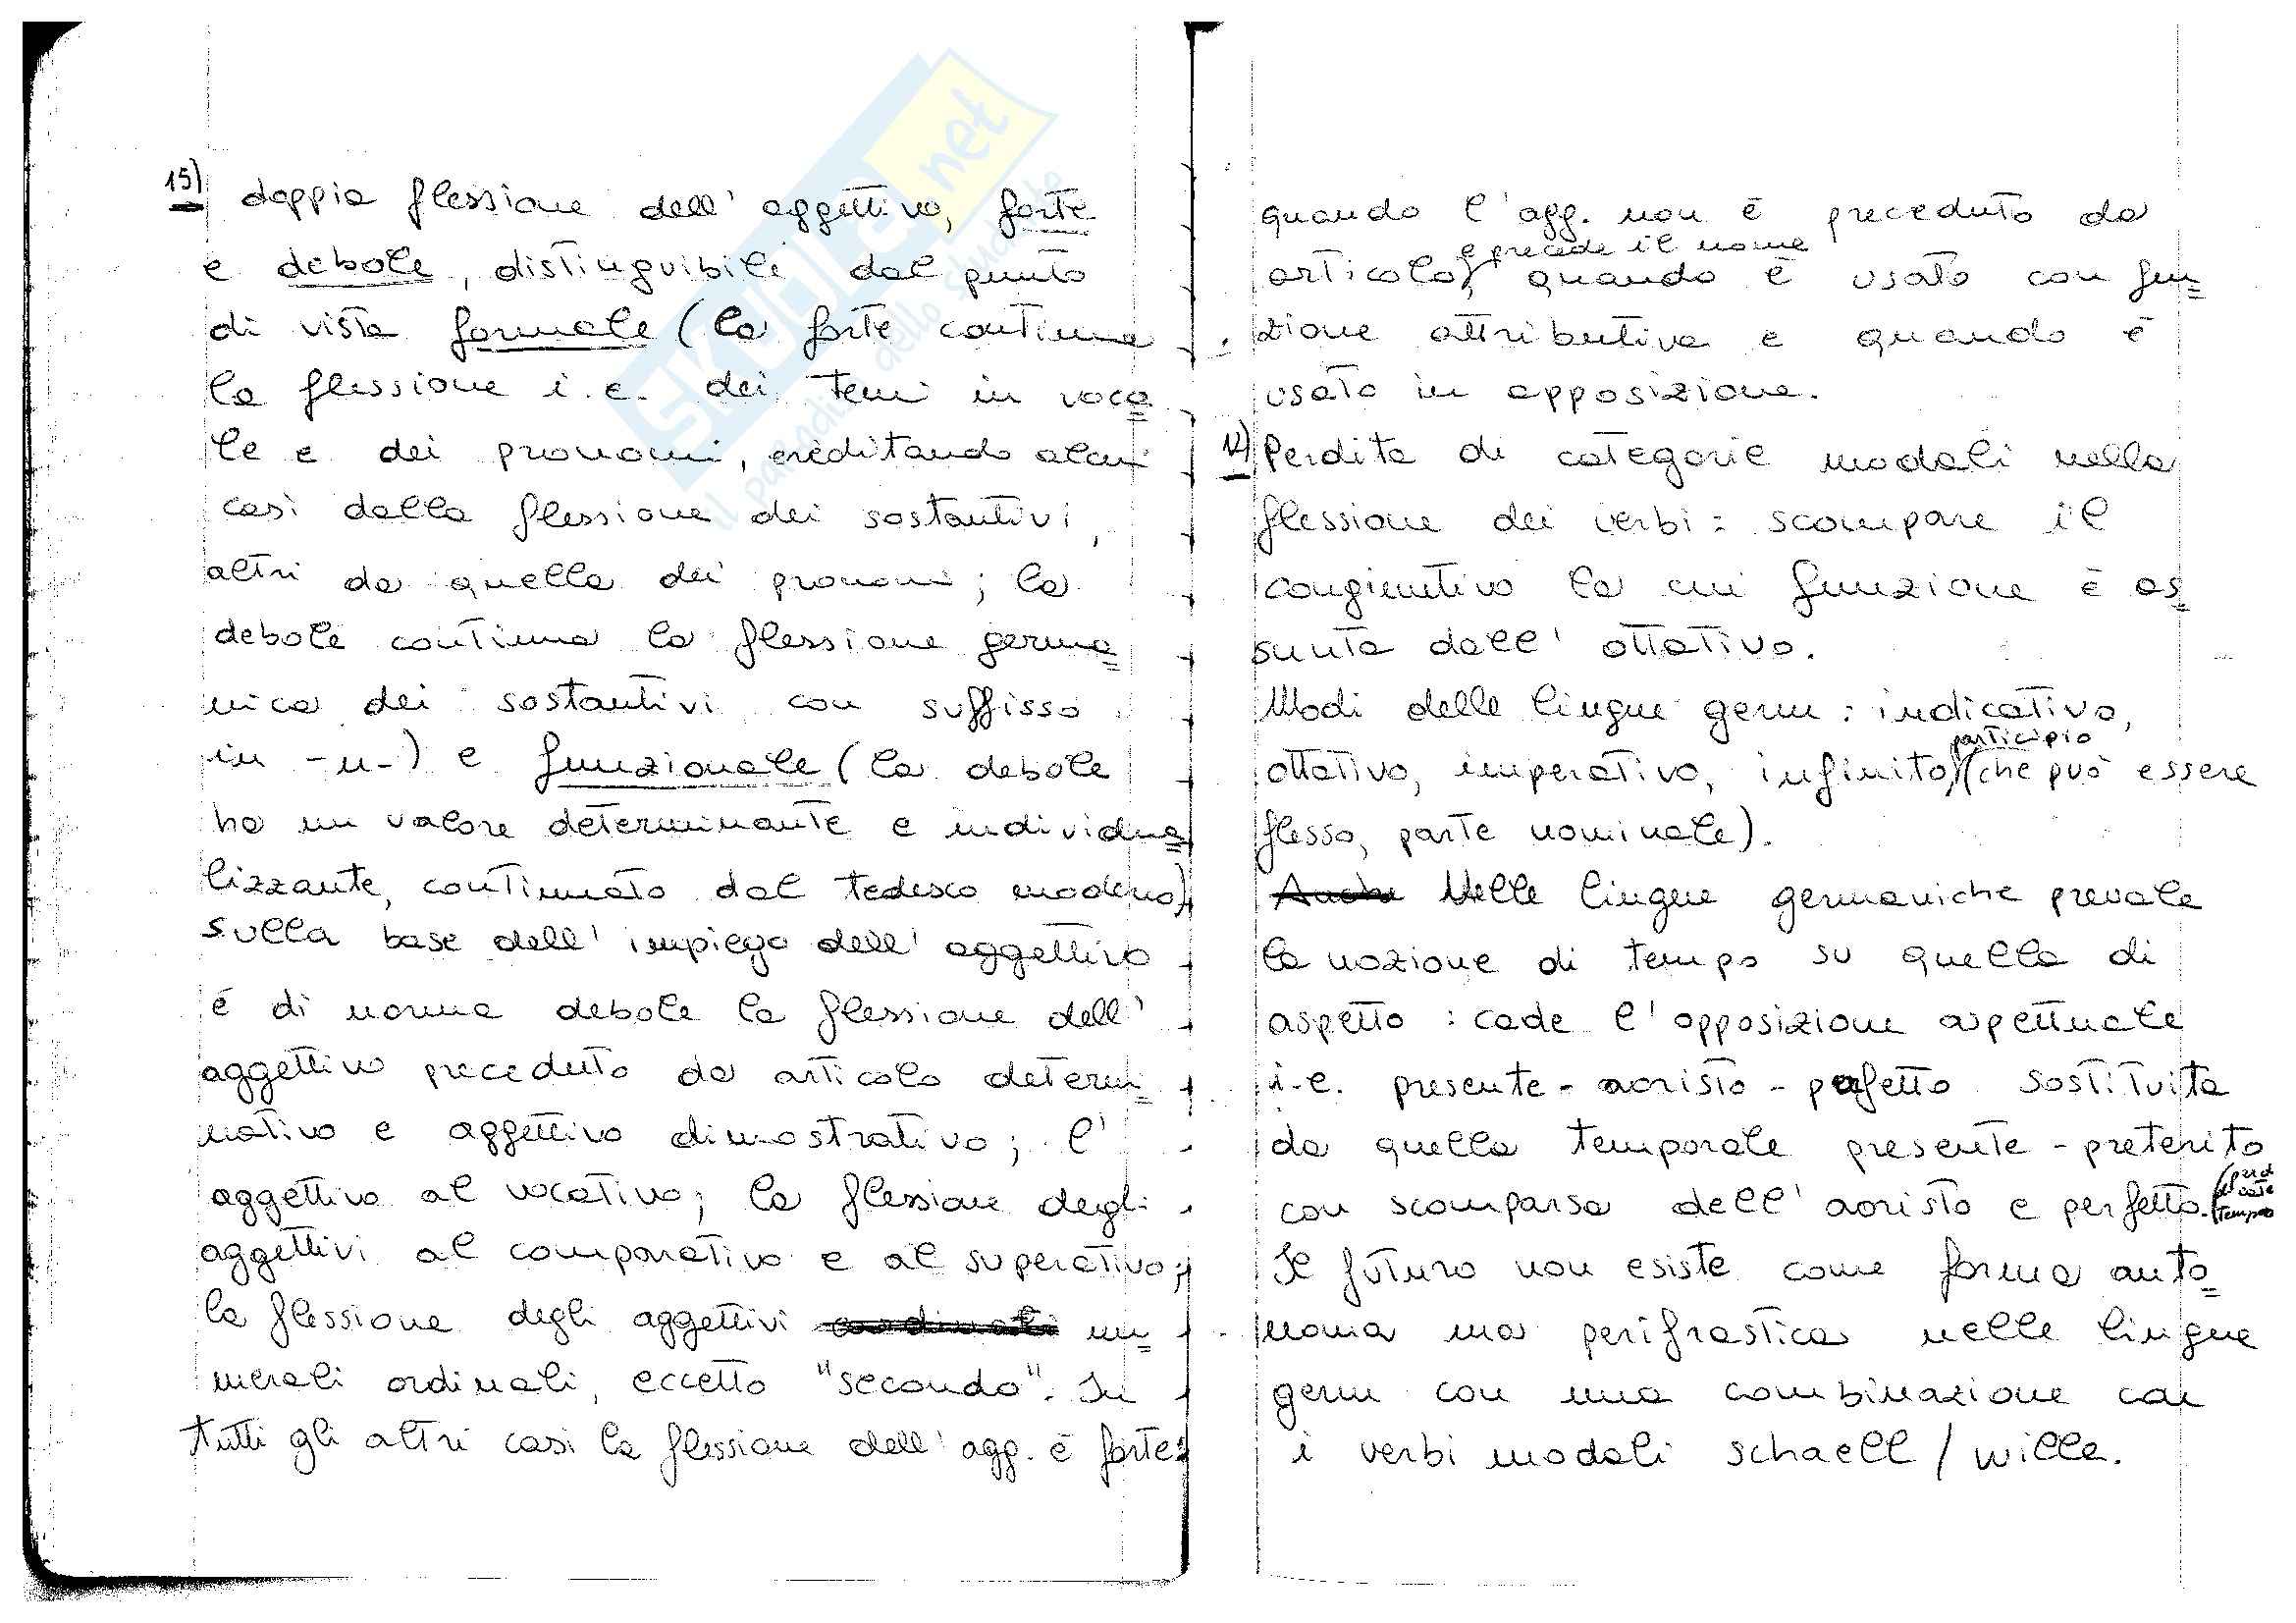 15) doppia flessione dell'aggettivo, forte
e debole, distinguibili dal punto
di vista formale (la forte continua
la flessione i.e. dei temi in voca=
le e dei pronomi, ereditando alcuni
casi dalla flessione dei sostantivi,
altri da quella dei pronomi; la
debole continua la flessione germa=
nica dei sostantivi con suffisso
in -n-) e funzionale (la debole
ha un valore determinante e individua=
lizzante, continuato dal tedesco moderno),
sulla base dell'impiego dell'aggettivo
é di norma debole la flessione dell'
aggettivo preceduto da articolo determi=
nativo e aggettivo dimostrativo; l'
aggettivo al vocativo; la flessione degli
aggettivi al comparativo e al superativo;
la flessione degli aggettivi ordinati nu=
merali ordinali, eccetto "secondo". In
tutti gli altri casi la flessione dell'agg. è forte:
quando l'agg. non è preceduto da
e precede il nome
articolo, quando è usato con fun=
zione attributiva e quando è
usato in apposizione.
Perdita di categorie modali nella
flessione dei verbi: scompare il
congiuntivo la cui funzione è as=
sunta dall'ottativo.
Modi delle lingue germ: indicativo,
participio
ottativo, imperativo, infinito, (che può essere
flesso, parte nominale).
Anche Nelle lingue germaniche prevale
la nozione di tempo su quella di
aspetto: cade l'opposizione aspettuale
i.e. presente-aoristo-perfetto sostituita
da quella temporale presente-preterito
con scomparsa dell'aoristo e perfetto.
tempo
Il futuro non esiste come forma auto=
noma ma perifrastica nelle lingue
germ con una combinazione con
i verbi modali schaell/wille.
skuola.net
il paradiso dello studente